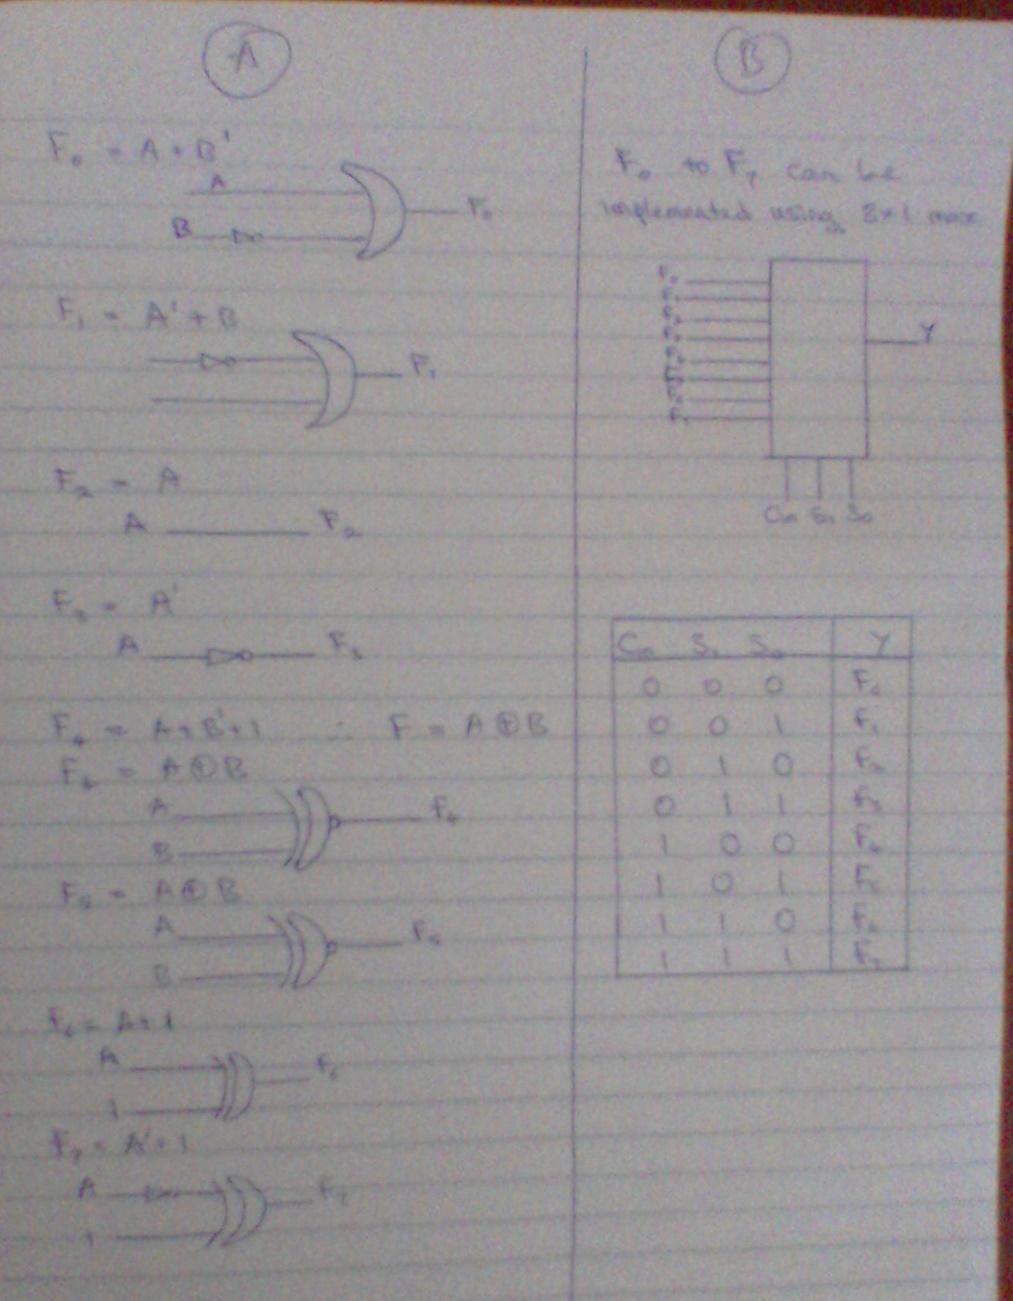 A
F₀ = A + B'
A
B
F₀
F₁ = A' + B
F₁
F₂ = A
A F₂
F₃ = A'
A F₃
F₄ = A + B' + 1 ∴ F = A ⊕ B
F₄ = A ⊙ B
A
B
F₄
F₅ = A ⊕ B
A
B
F₅
F₆ = A + 1
A
1
F₆
F₇ = A' + 1
A
1
F₇
B
F₀ to F₇ can be
implemented using 8×1 mux
Y
Cᵢₙ S₁ S₀
Cᵢₙ S₁ S₀ Y
0 0 0 F₀
0 0 1 F₁
0 1 0 F₂
0 1 1 F₃
1 0 0 F₄
1 0 1 F₅
1 1 0 F₆
1 1 1 F₇